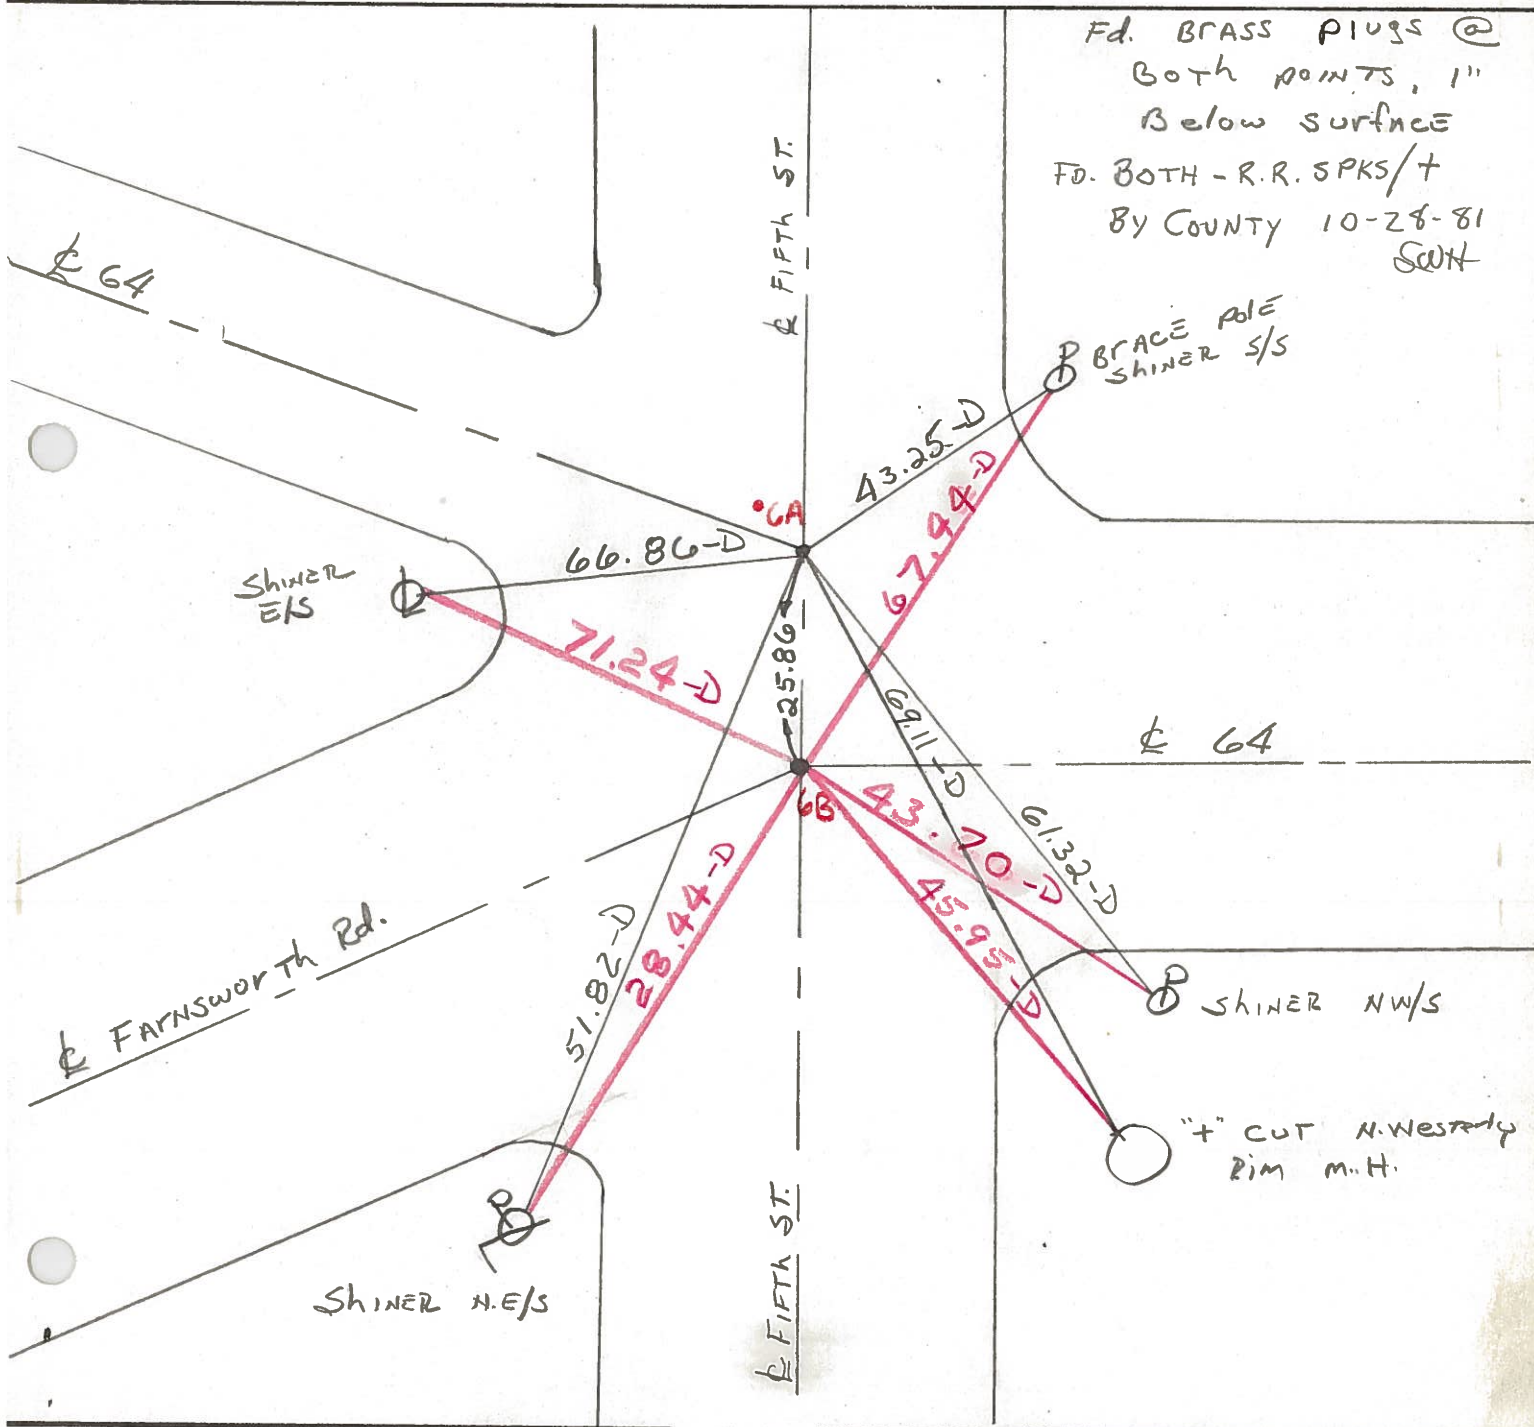 Fd. BrASS Plugs @
Both points, 1"
Below surface
FD. BOTH - R.R. SPKS/+
By COUNTY 10-28-81
SWH
℄ 64
℄ FIFTh ST.
P
BrACE Pole
ShINER S/S
43.25-D
67.94-D
6A
66.86-D
ShINER
E/S
L
71.24-D
25.86
69.11-D
℄ 64
6B
43.70-D
61.32-D
45.95-D
28.44-D
51.82-D
℄ FArNSworTh Rd.
P
ShINER NW/S
"+" CUT N.Westerly
Rim M.H.
P
ShINER N.E/S
℄ FIFTh ST.